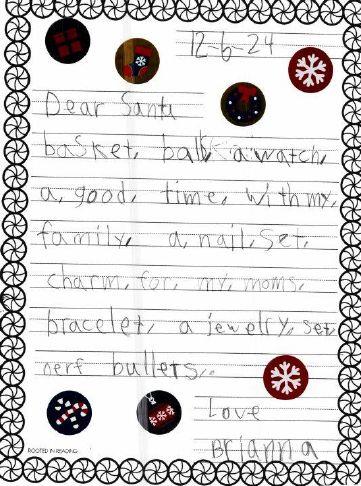 12-6-24
Dear Santa
basket, ball, a watch,
a, good, time, with my,
family, a, nail, set,
charm, for, my, moms,
bracelet, a jewelry, set,
nerf bullets..
Love
Brianna
ROOTED IN READING